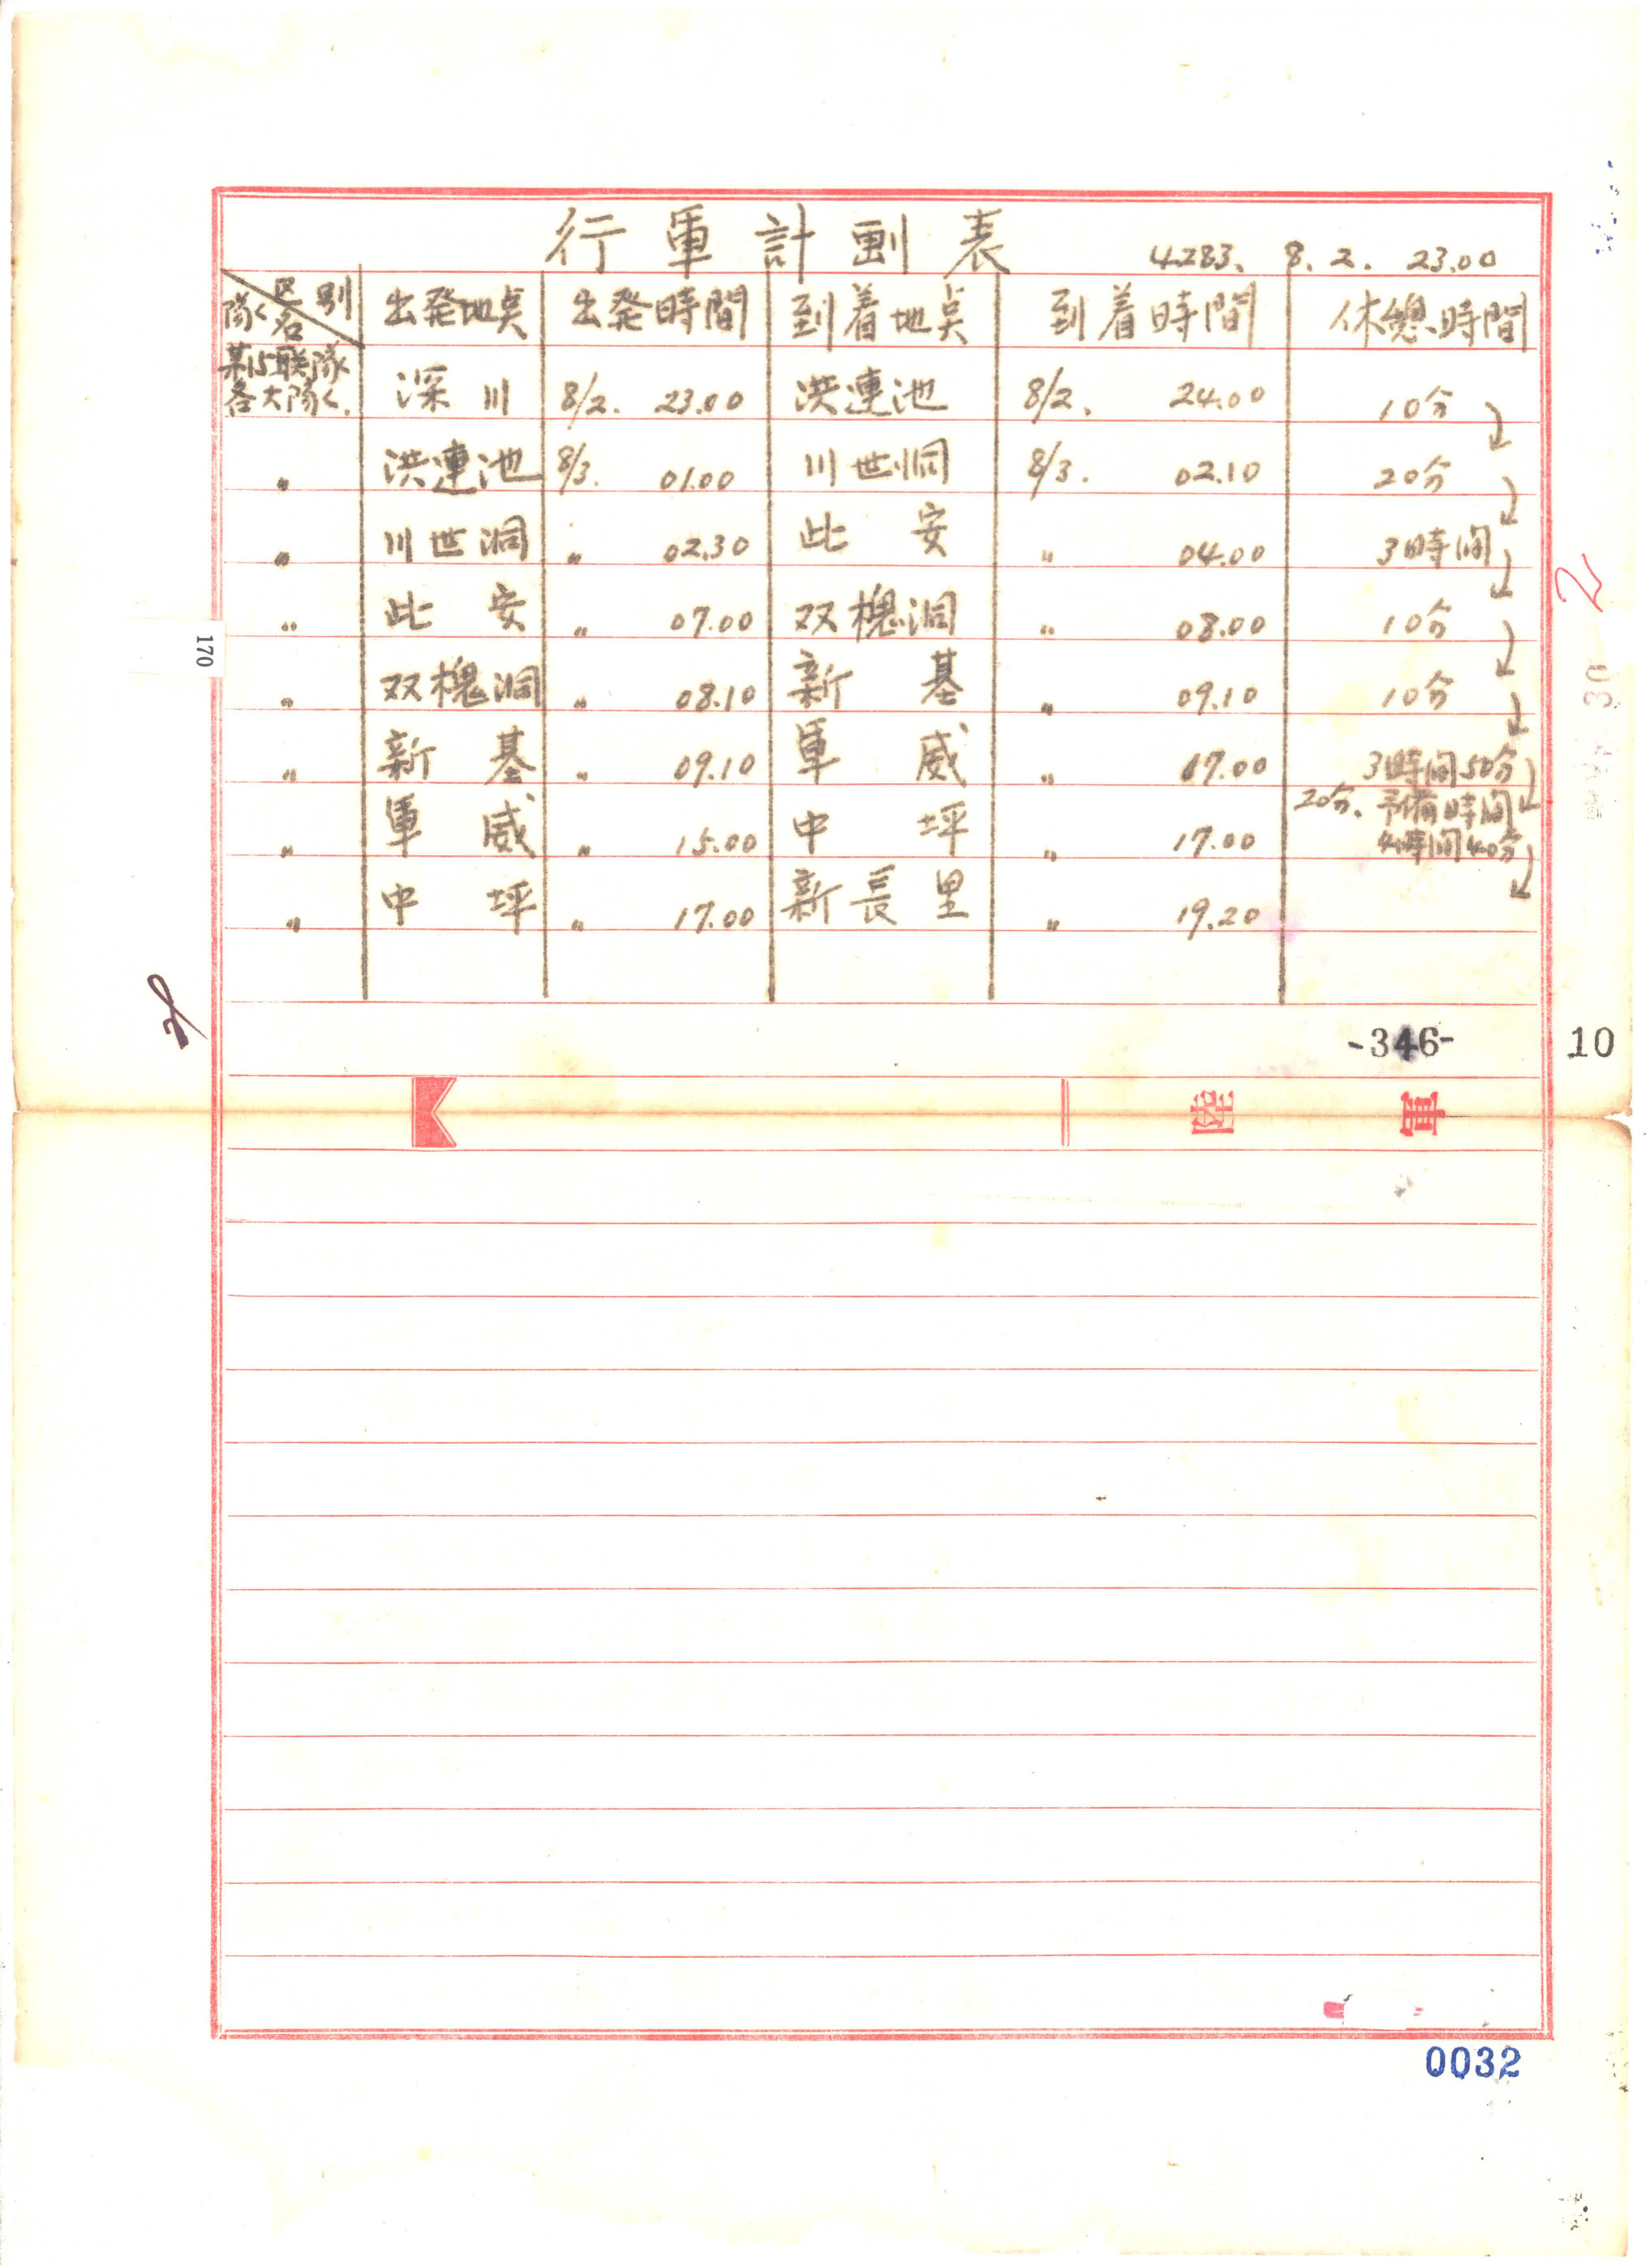 行軍計劃表
4283. 8. 2. 23.00
区別 出発地点 出発時間 到着地点 到着時間 休憩時間
隊く名
第15联隊
各大隊く. 深川 8/2. 23.00 洪連池 8/2. 24.00 10分
〃 洪連池 8/3. 01.00 川世洞 8/3. 02.10 20分
〃 川世洞 〃 02.30 比安 〃 04.00 3時间
〃 比安 〃 07.00 双槐洞 〃 08.00 10分
〃 双槐洞 〃 08.10 新基 〃 09.10 10分
〃 新基 〃 09.10 軍威 〃 17.00 3時间50分
20分. 予備時间
〃 軍威 〃 15.00 中坪 〃 17.00 4時间40分
〃 中坪 〃 17.00 新長里 〃 19.20
170
2
-346-
10
陸軍
0032